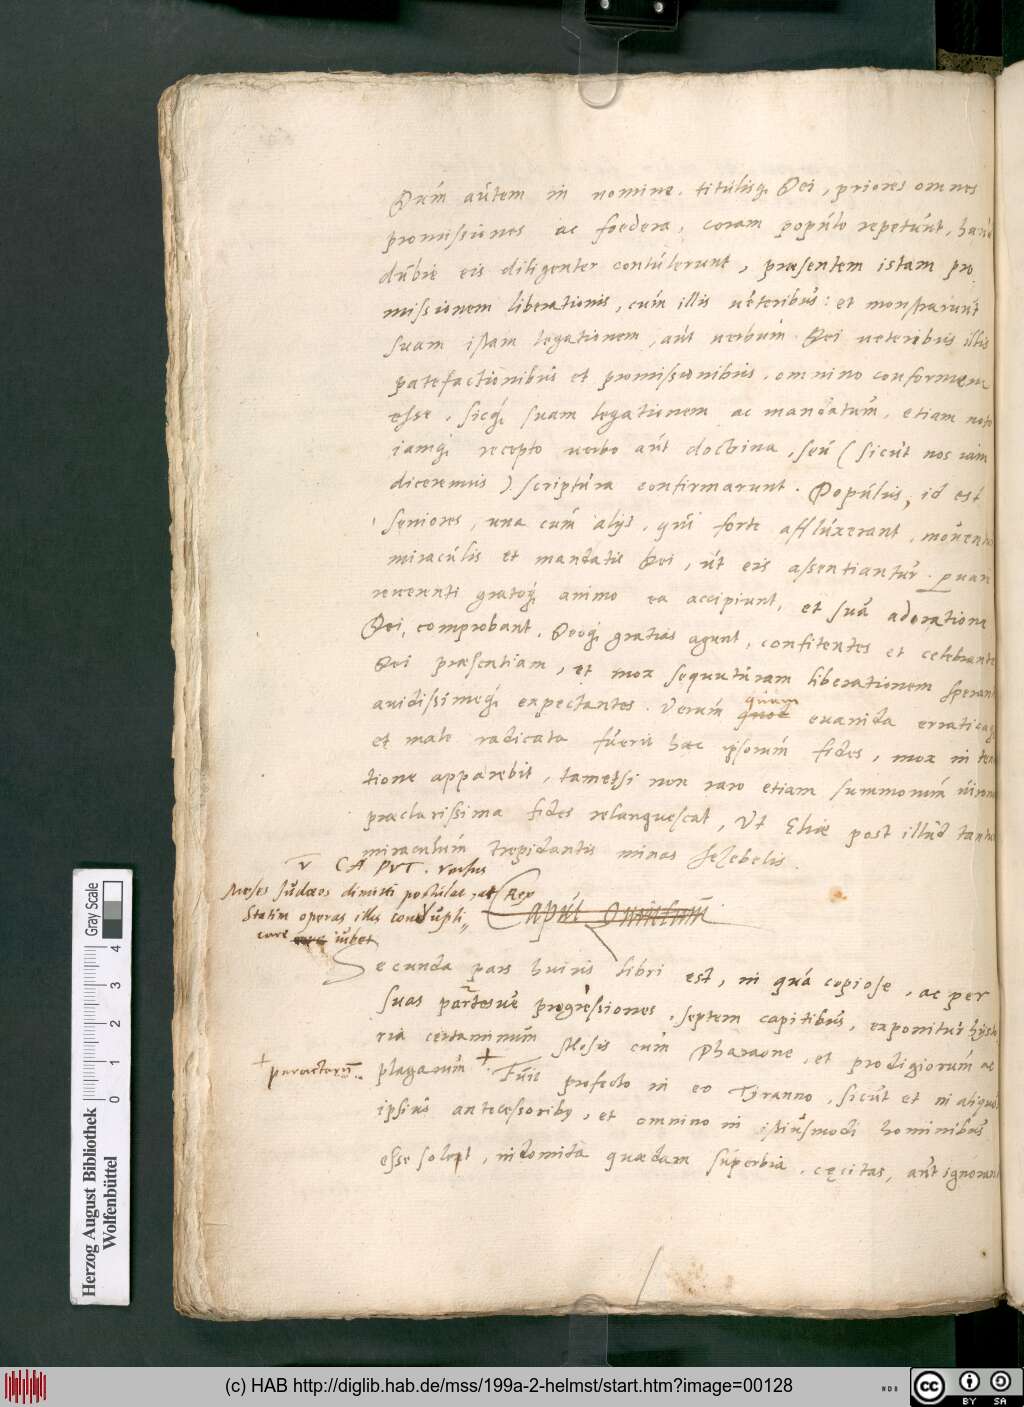 Dum autem in nomine, titulisq; Dei, priores omnes
promissiones ac foedera, coram populo repetunt, haud
dubie eis diligenter contulerunt, praesentem istam pro
missionem liberationis, cum illis veteribus: et monstrarunt
suam istam legationem, aut verbum Dei veteribus illis
patefactionibus et promissionibus, omnino conformem
esse, sicq; suam legationem ac mandatum, etiam noto
iamq; recepto verbo aut doctrina, seu (sicut nos iam
diceremus) scriptura confirmarunt. Populus, id est
seniores, una cum alijs, qui forte affluxerant, moventur
miraculis et mandatis Dei, ut eis assentiantur.
reverenti gratoq; animo ea accipiunt, et sua adoratione
Dei, comprobant, Deoq; gratias agunt, confitentes et celebrantes
Dei praesentiam, et mox sequuturam liberationem sperant
avidissimeq; expectantes. Verum quod quam evanida erraticaq;
et male radicata fuerit haec ipsorum fides, mox in ten
tione apparebit, tametsi non raro etiam summorum virorum
praeclarissima fides relanguescat, Ut Eliae post illud tantum
miraculum trepidantis minas Jezebelis.
V CAPUT. versus
Moses Judaeos dimitti postulat, at Rex
Statim operas illis conduplicari
care iubet
Caput Quintum
Secunda pars huius libri est, in qua copiose, ac per
suas partes progressiones, septem capitibus, exponitur hysto
ria certaminum Mosis cum Pharaone, et prodigiorum ac
plagarum + Fuit profecto in eo Tyranno, sicut et in aliquot
ipsius antecessoribus, et omnino in istiusmodi hominibus
esse solet, indomita quaedam superbia, cęcitas, aut ignorantia
Herzog August Bibliothek
Wolfenbüttel
Gray Scale
0 1 2 3 4
(c) HAB http://diglib.hab.de/mss/199a-2-helmst/start.htm?image=00128
cc BY SA